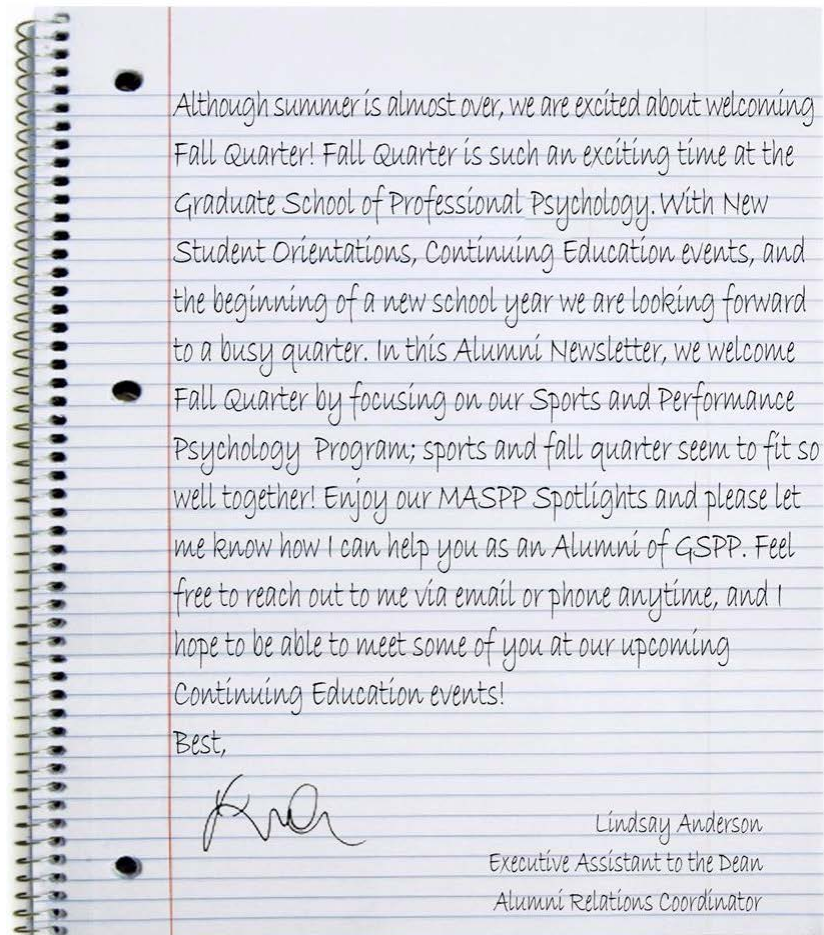 Although summer is almost over, we are excited about welcoming
Fall Quarter! Fall Quarter is such an exciting time at the
Graduate School of Professional Psychology. With New
Student Orientations, Continuing Education events, and
the beginning of a new school year we are looking forward
to a busy quarter. In this Alumni Newsletter, we welcome
Fall Quarter by focusing on our Sports and Performance
Psychology Program; sports and fall quarter seem to fit so
well together! Enjoy our MASPP Spotlights and please let
me know how I can help you as an Alumni of GSPP. Feel
free to reach out to me via email or phone anytime, and I
hope to be able to meet some of you at our upcoming
Continuing Education events!
Best,
Lindsay Anderson
Executive Assistant to the Dean
Alumni Relations Coordinator